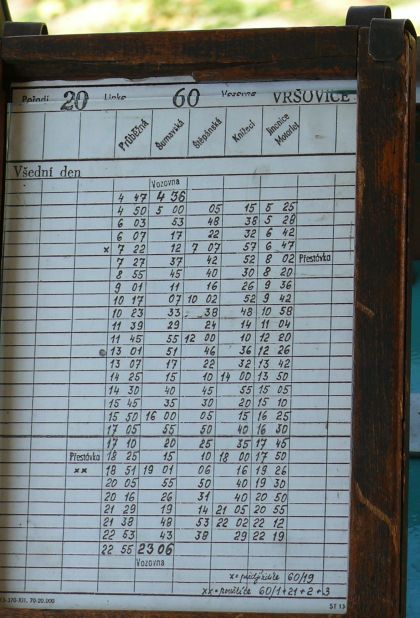 Pořadí 20 Linka 60 Vozovna VRŠOVICE
Průběžná Šumavská Štěpánská Knížecí Jinonice Motorlet
Všední den
Vozovna
4 47 4 36
4 50 5 00 05 15 5 25
6 03 53 48 38 5 28
6 07 17 22 32 6 42
x 7 22 12 7 07 57 6 47
7 27 37 42 52 8 02 Přestávka
8 55 45 40 30 8 20
9 01 11 16 26 9 36
10 17 07 10 02 52 9 42
10 23 33 38 48 10 58
11 39 29 24 14 11 04
11 45 55 12 00 10 12 20
13 01 51 46 36 12 26
13 07 17 22 32 13 42
14 25 15 10 14 00 13 50
14 30 40 45 55 15 05
15 45 35 30 20 15 10
15 50 16 00 05 15 16 25
17 05 55 50 40 16 30
17 10 20 25 35 17 45
Přestávka 18 25 15 10 18 00 17 50
xx 18 51 19 01 06 16 19 26
20 05 55 50 40 19 30
20 16 26 31 40 20 50
21 29 19 14 21 05 20 55
21 38 48 53 22 02 22 12
22 53 43 38 29 22 19
22 55 23 06
Vozovna
x = 60/19
xx = 60/1+21+2+3
70-20.000 ST 13